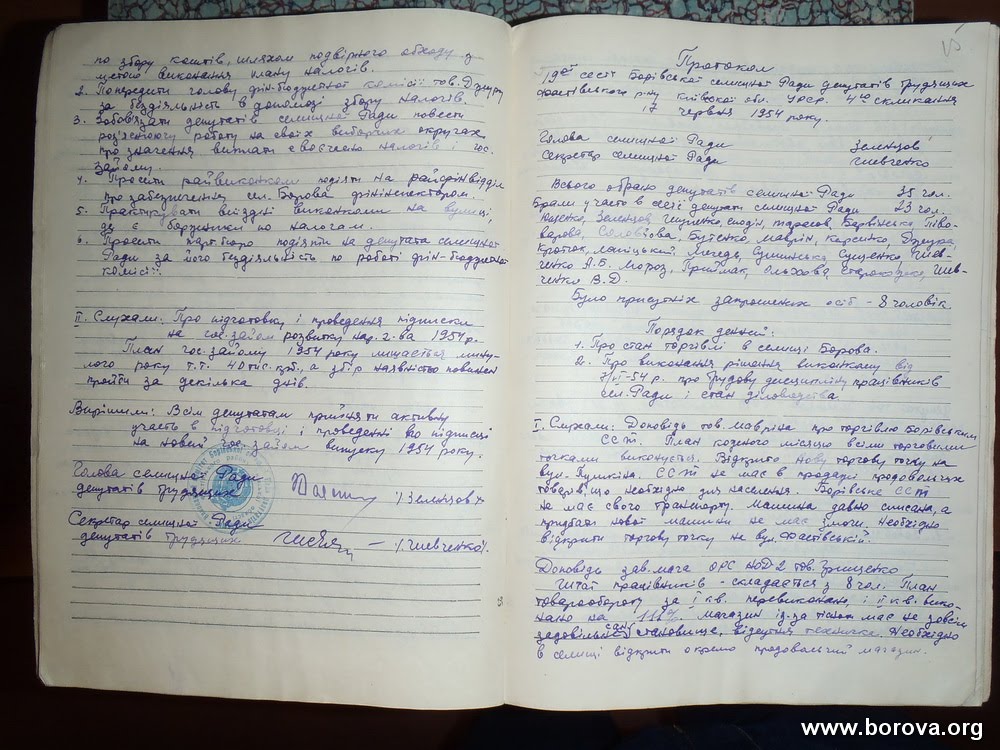 по збору коштів, шляхом подвірного обходу з
метою виконання плану налогів.
2. Попередити голову фін-бюджетної комісії тов. Дзюбу
за бездіяльність в допомозі збору налогів.
3. Зобов'язати депутатів селищної Ради повести
роз'яснючу роботу на своїх виборчих округах
про значення виплати своєчасно налогів і гос.
займу.
4. Просити райвиконком подіяти на райфінвідділ
про забезпечення сел. Борова фінінспектором.
5. Практикувати виїздні виконкоми на вулиці,
де є боржники по налогам.
6. Просити партбюро подіяти на депутата селищної
Ради за його бездіяльність по роботі фін-бюджетної
комісії.
II. Слухали: Про підготовку і проведення підписки
на гос. займ розвитку нар. г-ва 1954 р.
План гос. займу 1954 року лишається мину-
лого року т.т. 40 тис. крб., а збір наявністю повинен
пройти за декілька днів.
Вирішили: Всім депутатам прийняти активну
участь в підготовці і проведенні по підписці
на новий Гос. займ випуску 1954 року.
Голова селищної Ради
депутатів трудящих /Зеленцов/
Секретар селищної Ради
депутатів трудящих /Шевченко/.
15
Протокол
сесії Борівської селищної Ради депутатів трудящих
Фастівського р-ну Київської обл. УРСР. 4го скликання
17 червня 1954 року.
Голова селищної Ради Зеленцов
Секретар селищної Ради Шевченко
Всього обрано депутатів селищної Ради 35 чол.
Брали участь в сесії депутати селищної Ради 23 чол.
Зеленцов, Тарасов, Барвінко, Піво-
варова, Соловйова, Бутенко, Маврін, Карпенко, Дзюбка,
Кроток, Сушинська, Сущенко, Шев-
ченко А.Б. Мороз, Приймак, Ольхова, Шев-
ченко В.Д.
Було присутніх запрошених осіб - 8 чоловік.
Порядок денний:
1. Про стан торгівлі в селищі Борова.
2. Про виконання рішення виконкому від
7/VI-54 р. про трудову дисципліну працівників
сел. Ради і стан діловодства
I. Слухали: Доповідь тов. Мавріна про торгівлю Борівським
ССТ. План кожного місяцю всіми торговими
точками виконується. Відкрито нову торгову точку на
вул. Пушкіна. ССТ не має в продажі продовольчих
товарів, що необхідно для населення. Борівське ССТ
не має свого транспорту. Машина давно списана, а
придбати нової машини не має змоги. Необхідно
відкрити торгову точку на вул. Фастівській.
Доповідь зав. маг. ОРС НОД-2 тов. Грищенко
Штат працівників - складається з 8 чол. План
товарообороту за I кв. перевиконано, і II кв. вико-
нано на 111%. магазин із-за тісноти має не зовсім
задовільне сан. становище, відсутня технічка. Необхідно
в селищі відкрити окремо продовольчий магазин.
www.borova.org